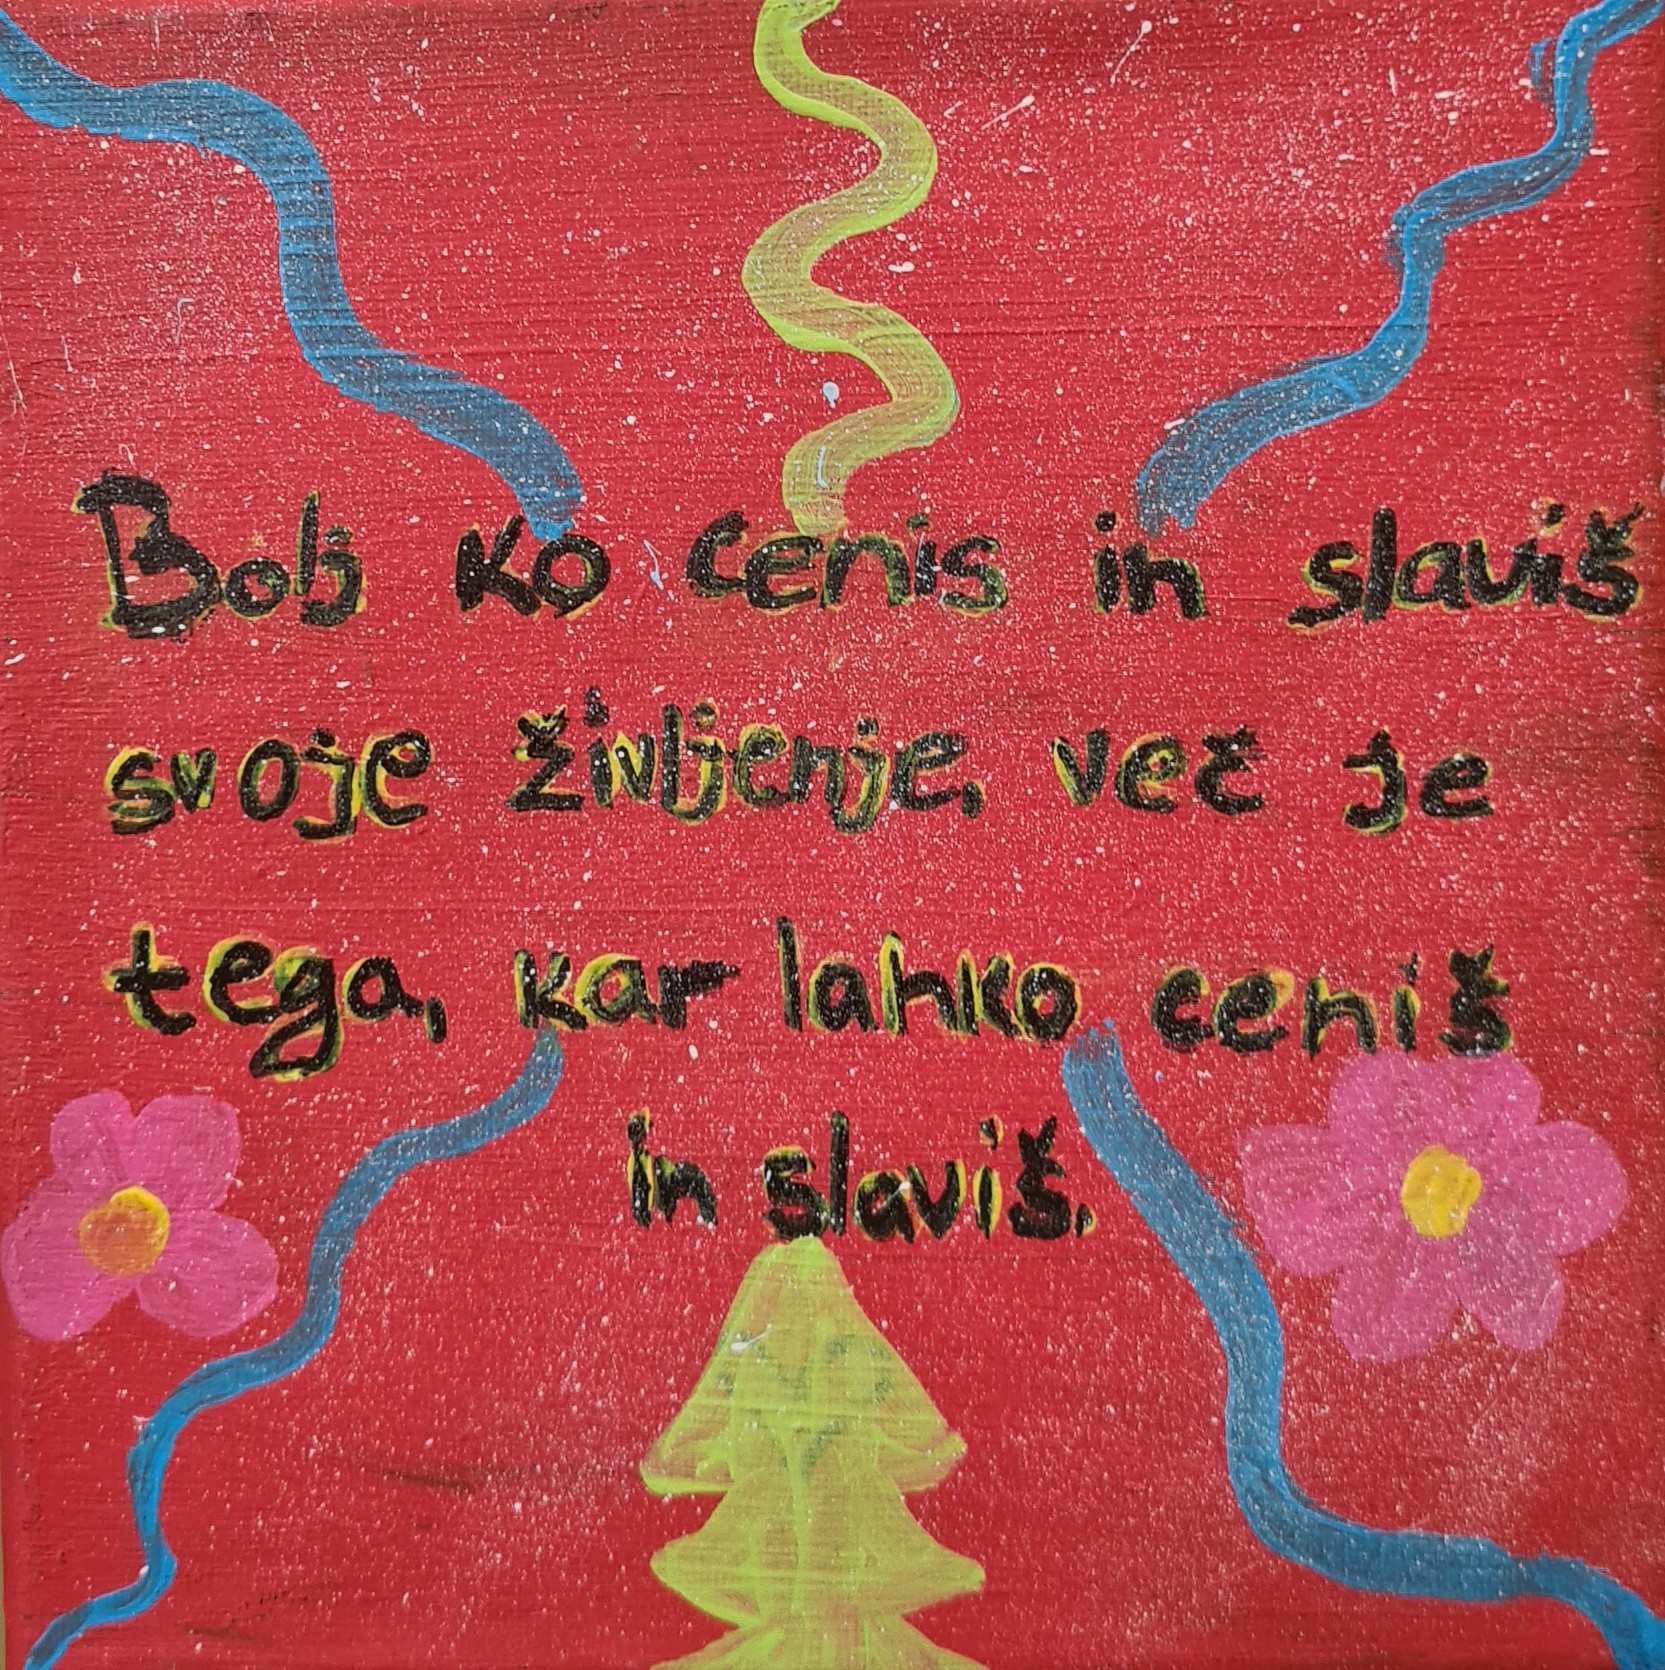 Bolj ko cenis in slaviš
svoje življenje, več je
tega, kar lahko ceniš
in slaviš.